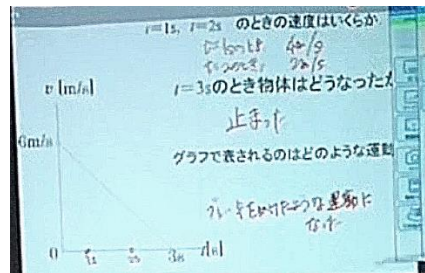 t=1s, t=2s のときの速度はいくらか
t=1のとき 4m/s
t=2のとき 2m/s
v [m/s]
t=3sのとき物体はどうなったか
止まった
6m/s
グラフで表されるのはどのような運動
ブレーキをかけたような運動に
なった
0 1s 2s 3s t[s]